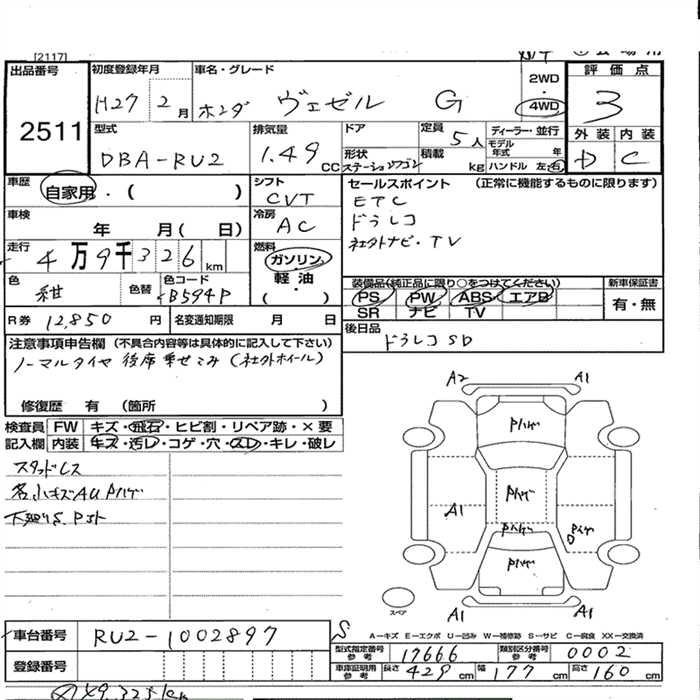 [2117]
出品番号
2511
初度登録年月
H27 2月
車名・グレード
ホンダ ヴェゼル G
2WD
・
4WD
評価点
3
外装 内装
D C
型式
DBA-RU2
排気量
1.49
CC
ドア
形状
ステーションワゴン
定員
5人
積載
kg
ディーラー・並行
モデル
年式 年
ハンドル 左・右
車歴
自家用・( )
シフト
CVT
セールスポイント (正常に機能するものに限ります)
ETC
ドラレコ
社外ナビ・TV
車検
年 月( 日)
冷房
AC
走行
4万9千326km
燃料
ガソリン・
軽・油
( )
色
紺
色替
色コード
B594P
装備品(純正品に限り○をつけてください)
PS PW ABS エアB
SR ナビ TV
新車保証書
有・無
R券 12,850 円
名変通知期限 月 日
後日品
ドラレコSD
注意事項申告欄 (不具合内容等は具体的に記入して下さい)
ノーマルタイヤ 後席乗せこみ (社外ホイール)
修復歴 有 (箇所 )
検査員
記入欄
FW キズ・飛石・ヒビ割・リペア跡・×要
内装 キズ・汚レ・コゲ・穴・スレ・キレ・破レ
スタッドレス
各小キズAU Pハゲ
A2 A1
Pハゲ
A1 Pハゲ
Pハゲ
Pハゲ
D
Pハゲ
A1 A1
スペア
S
A－キズ E－エクボ U－凹み W－補修跡 S－サビ C－腐食 XX－交換済
車台番号
RU2-1002897
型式指定番号
参考
17666
類別区分番号
参考
0002
登録番号
車庫証明用
参考
長さ 429 cm 幅 177 cm 高さ 160 cm